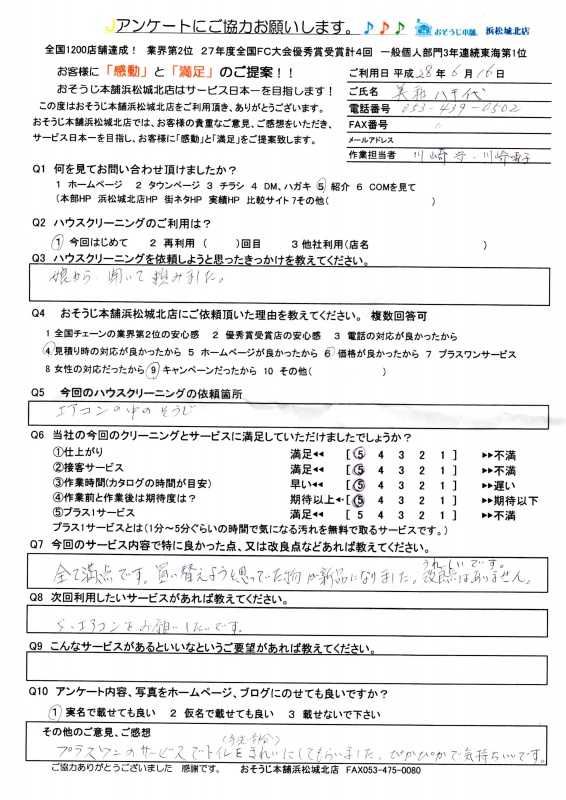 Jアンケートにご協力お願いします。♪♪♪ おそうじ本舗 浜松城北店
全国1200店舗達成! 業界第2位 27年度全国FC大会優秀賞受賞計4回 一般個人部門3年連続東海第1位
お客様に「感動」と「満足」のご提案!!
おそうじ本舗浜松城北店はサービス日本一を目指します!
この度はおそうじ本舗浜松城北店をご利用頂き、ありがとうございます。
おそうじ本舗浜松城北店では、お客様の貴重なご意見、ご感想をいただき、
サービス日本一を目指し、お客様に「感動」と「満足」をご提案致します。
ご利用日 平成28年6月16日
ご氏名 美和 八千代
電話番号 053-439-0502
FAX番号 〃
メールアドレス
作業担当者 川崎 ・川崎
Q1 何を見てお問い合わせ頂けましたか?
1 ホームページ 2 タウンページ 3 チラシ 4 DM、ハガキ ⑤ 紹介 6 COMを見て
(本部HP 浜松城北店HP 街ネタHP 実績HP 比較サイト 7その他( )
Q2 ハウスクリーニングのご利用は?
① 今回はじめて 2 再利用 ( )回目 3 他社利用(店名 )
Q3 ハウスクリーニングを依頼しようと思ったきっかけを教えてください。
娘から 聞いて 頼みました。
Q4 おそうじ本舗浜松城北店にご依頼頂いた理由を教えてください。 複数回答可
1 全国チェーンの業界第2位の安心感 2 優秀賞受賞店の安心感 3 電話の対応が良かったから
④ 見積り時の対応が良かったから 5 ホームページが良かったから ⑥ 価格が良かったから 7 プラスワンサービス
8 女性の対応だったから ⑨ キャンペーンだったから 10 その他( )
Q5 今回のハウスクリーニングの依頼箇所
エアコンの中のそうじ
Q6 当社の今回のクリーニングとサービスに満足していただけましたでしょうか?
①仕上がり 満足◂◂ [ ⑤ 4 3 2 1 ] ▸▸不満
②接客サービス 満足◂◂ [ ⑤ 4 3 2 1 ] ▸▸不満
③作業時間(カタログの時間が目安) 早い◂◂ [ ⑤ 4 3 2 1 ] ▸▸遅い
④作業前と作業後は期待度は? 期待以上◂ [ ⑤ 4 3 2 1 ] ▸▸期待以下
⑤プラス1サービス 満足◂◂ [ 5 4 3 2 1 ] ▸▸不満
プラス1サービスとは(1分~5分ぐらいの時間で気になる汚れを無料で取るサービスです。)
Q7 今回のサービス内容で特に良かった点、又は改良点などあれば教えてください。
うれしいです。
全て満点です。買い替えようと思っていた物が新品になりました。改良点はありません。
Q8 次回利用したいサービスがあれば教えてください。
エアコンをお願いしたいです。
Q9 こんなサービスがあるといいなというご要望があれば教えてください。
Q10 アンケート内容、写真をホームページ、ブログにのせても良いですか?
① 実名で載せても良い 2 仮名で載せても良い 3 載せないで下さい
その他のご意見、ご感想
プラスワンのサービスでトイレをきれいにしてもらいました。ぴかぴかで気持ちいいです。
ご協力ありがとうございました 感謝です。 おそうじ本舗浜松城北店 FAX053-475-0080